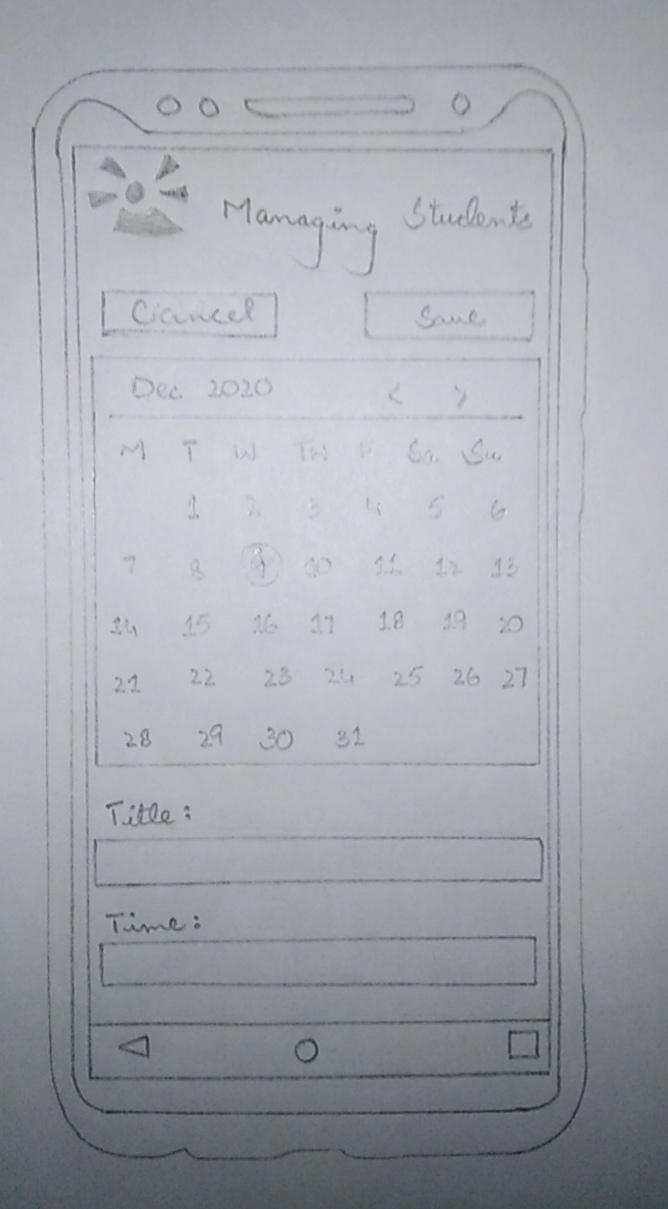 Managing Students
Cancel Save
Dec 2020 < >
M T W TH F Sa. Su
1 2 3 4 5 6
7 8 9 10 11 12 13
14 15 16 17 18 19 20
21 22 23 24 25 26 27
28 29 30 31
Title:
Time: